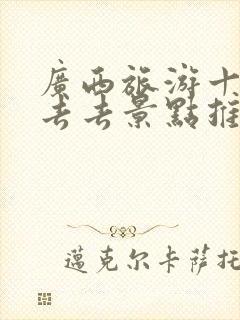 廣西旅游十
去去景點推
邁克尔卡萨托